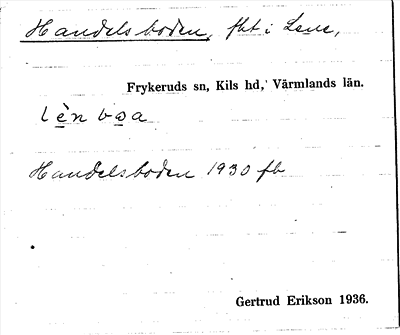 Handelsboden, fht i Lene,
Frykeruds sn, Kils hd, Värmlands län.
lèn bɷa
Handelsboden 1930 fb
Gertrud Erikson 1936.